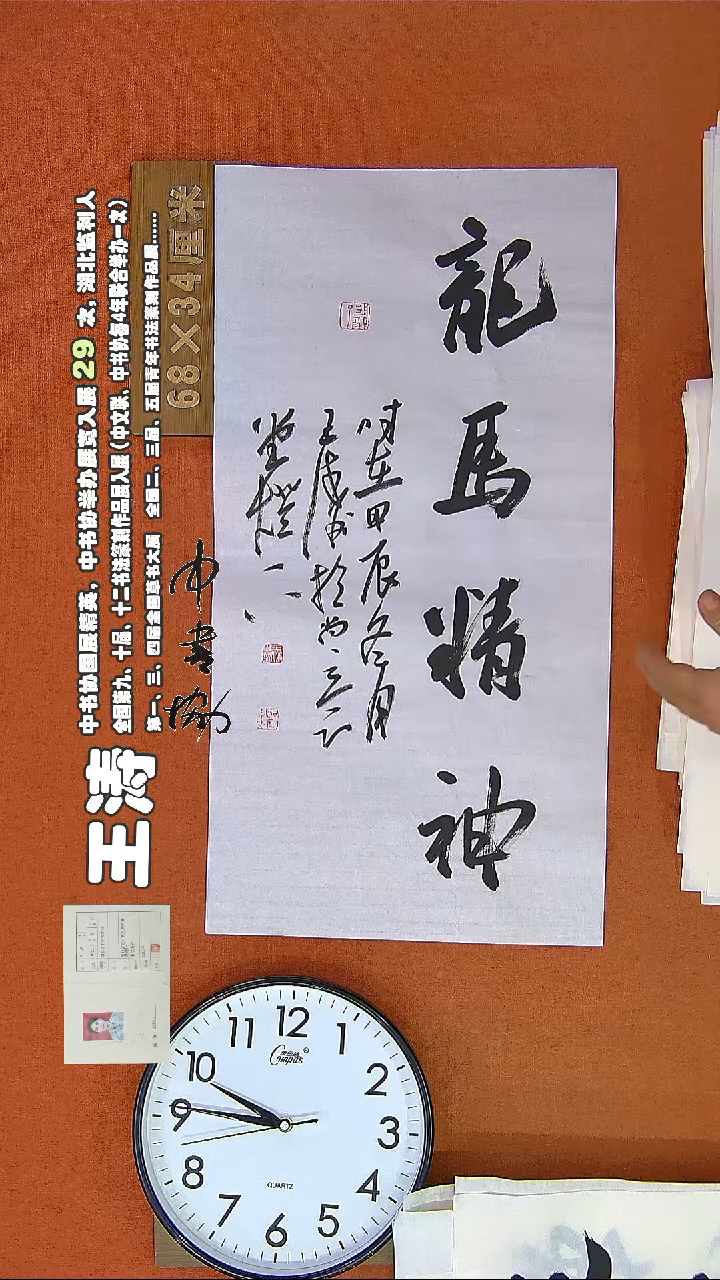 龍馬精神
时在甲辰冬月
王涛书於
中书协国展精英，中书协举办展览入展29次，湖北监利人
全国第九、十届、十二书法篆刻作品展入展（中文联、中书协每4年联合举办一次）
第一、三、四届全国草书大展 全国二、三届、五届青年书法篆刻作品展……
王涛
中書協
68×34厘米
12
1
2
3
4
5
6
7
8
9
10
11
Compas
QUARTZ